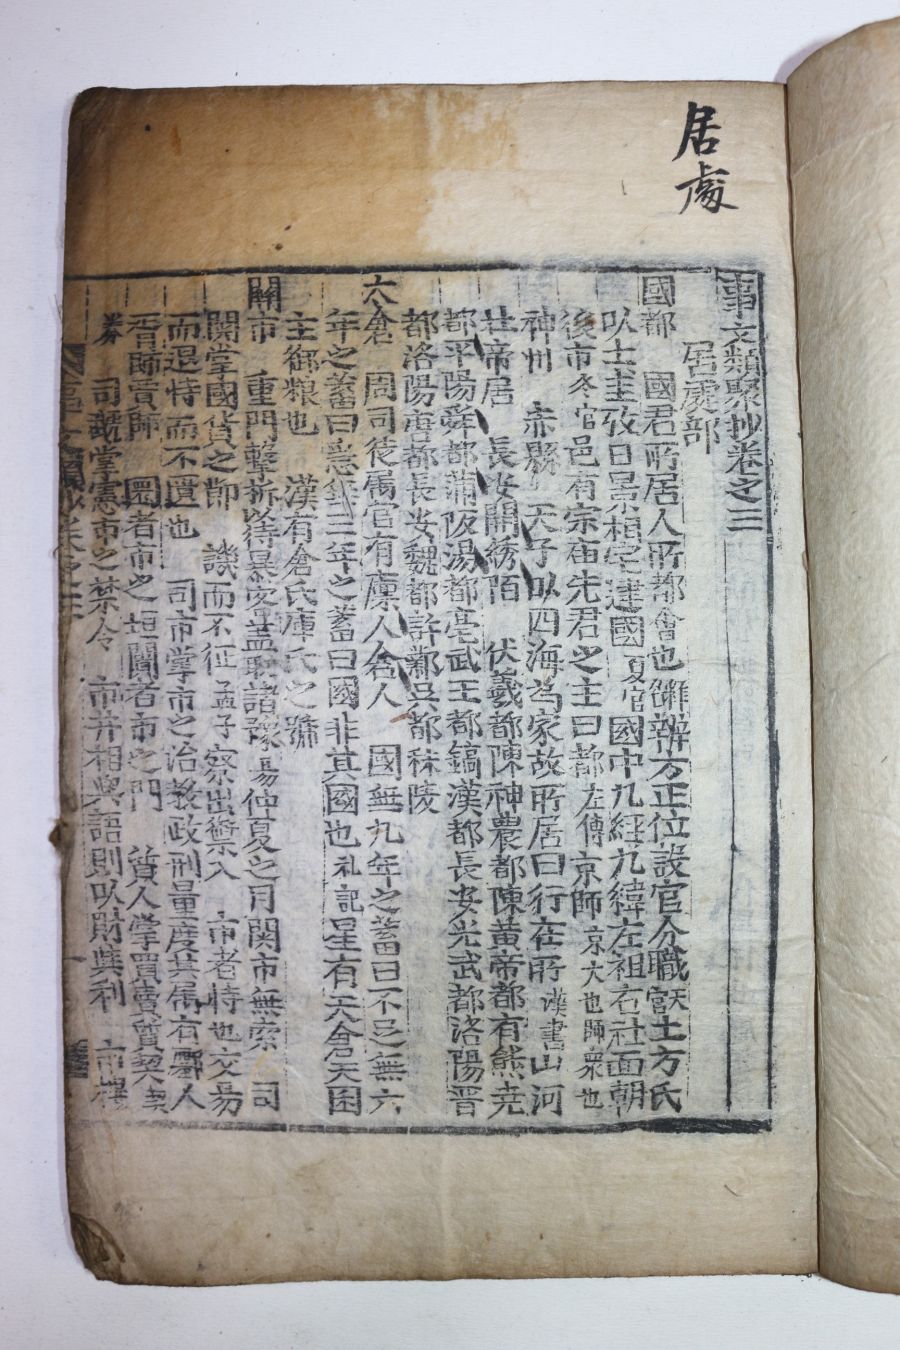 居處
事文類聚抄卷之三
居處部
國都 國君所居人所都會也 辨方正位設官分職 天官土方氏
以土圭致日景相宅建國 夏官國中九經九緯左祖右社面朝
後市 冬官邑有宗庙先君之主曰都 左傳京師 京大也師衆也
神州 赤縣 天子以四海為家故所居曰行在所 漢書山河
壮帝居 長安開綉陌 伏羲都陳神農都陳黃帝都有熊尭
都平陽舜都蒲阪湯都亳武王都鎬漢都長安光武都洛陽晋
都洛陽唐都長安魏都許鄴吳都秣陵
太倉 周司徒属官有廪人倉人 國無九年之蓄曰不足無六
年之蓄曰急無三年之蓄曰國非其國也 礼記星有天倉天囷
主御粮也 漢有倉氏庫氏之號
關市 重門擊柝以待暴客盖取諸豫 易仲夏之月関市無索 司
関掌國貨之節 譏而不征 孟子察出禦入 市者恃也交易
而退恃而不匱也 司市掌市之治教政刑量度其属有鄽人
胥師賈師 闤者市之垣闠者市之門 質人掌買賣質契
券 司虣掌憲市之禁令 市井相與語則以財與利 市樓